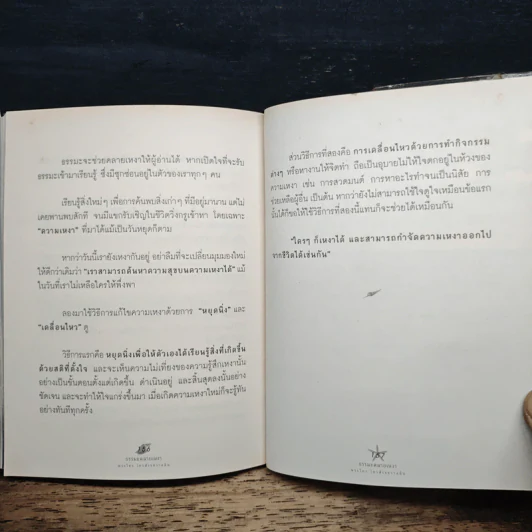 ธรรมะจะช่วยคลายเหงาให้ผู้อ่านได้ หากเปิดใจที่จะรับ
ธรรมะเข้ามาเรียนรู้ ซึ่งมีชุกซ่อนอยู่ในตัวของเราทุกๆ คน
เรียนรู้สิ่งใหม่ๆ เพื่อการค้นพบสิ่งเก่าๆ ที่มีอยู่มานาน แต่ไม่
เคยพานพบสักที จนมีแขกรับเชิญในชีวิตวิ่งกรูเข้าหา โดยเฉพาะ
"ความเหงา" ที่มาได้แม้เป็นวันหยุดก็ตาม
หากว่าวันนี้เรายังเหงากันอยู่ อย่าลืมที่จะเปลี่ยนมุมมองใหม่
ให้ดีกว่าเดิมว่า "เราสามารถค้นหาความสุขบนความเหงาได้" แม้
ในวันที่เราไม่เหลือใครให้พึ่งพา
ลองมาใช้วิธีการแก้ไขความเหงาด้วยการ "หยุดนิ่ง" และ
"เคลื่อนไหว" ดู
วิธีการแรกคือ หยุดนิ่งเพื่อให้ตัวเองได้เรียนรู้สิ่งที่เกิดขึ้น
ด้วยสติที่ตั้งใจ และจะเห็นความไม่เที่ยงของความรู้สึกเหงานั้น
อย่างเป็นขั้นตอนตั้งแต่เกิดขึ้น ดำเนินอยู่ และสิ้นสุดลงนั้นอย่าง
ชัดเจน และจะทำให้ใจแกร่งขึ้นมา เมื่อเกิดความเหงาใหม่ก็จะรู้ทัน
อย่างทันทีทุกครั้ง
ส่วนวิธีการที่สองคือ การเคลื่อนไหวด้วยการทำกิจกรรม
ต่างๆ หรือหางานให้จิตทำ ถือเป็นอุบายไม่ให้ใจตกอยู่ในห้วงของ
ความเหงา เช่น การสวดมนต์ การหาอะไรทำจนเป็นนิสัย การ
ช่วยเหลือผู้อื่น เป็นต้น หากว่ายังไม่สามารถใช้ใจดูใจเหมือนข้อแรก
นั้นได้ก็ขอให้ใช้วิธีการที่สองนี้แทนก็จะช่วยได้เหมือนกัน
"ใครๆ ก็เหงาได้ และสามารถกำจัดความเหงาออกไป
จากชีวิตได้เช่นกัน"